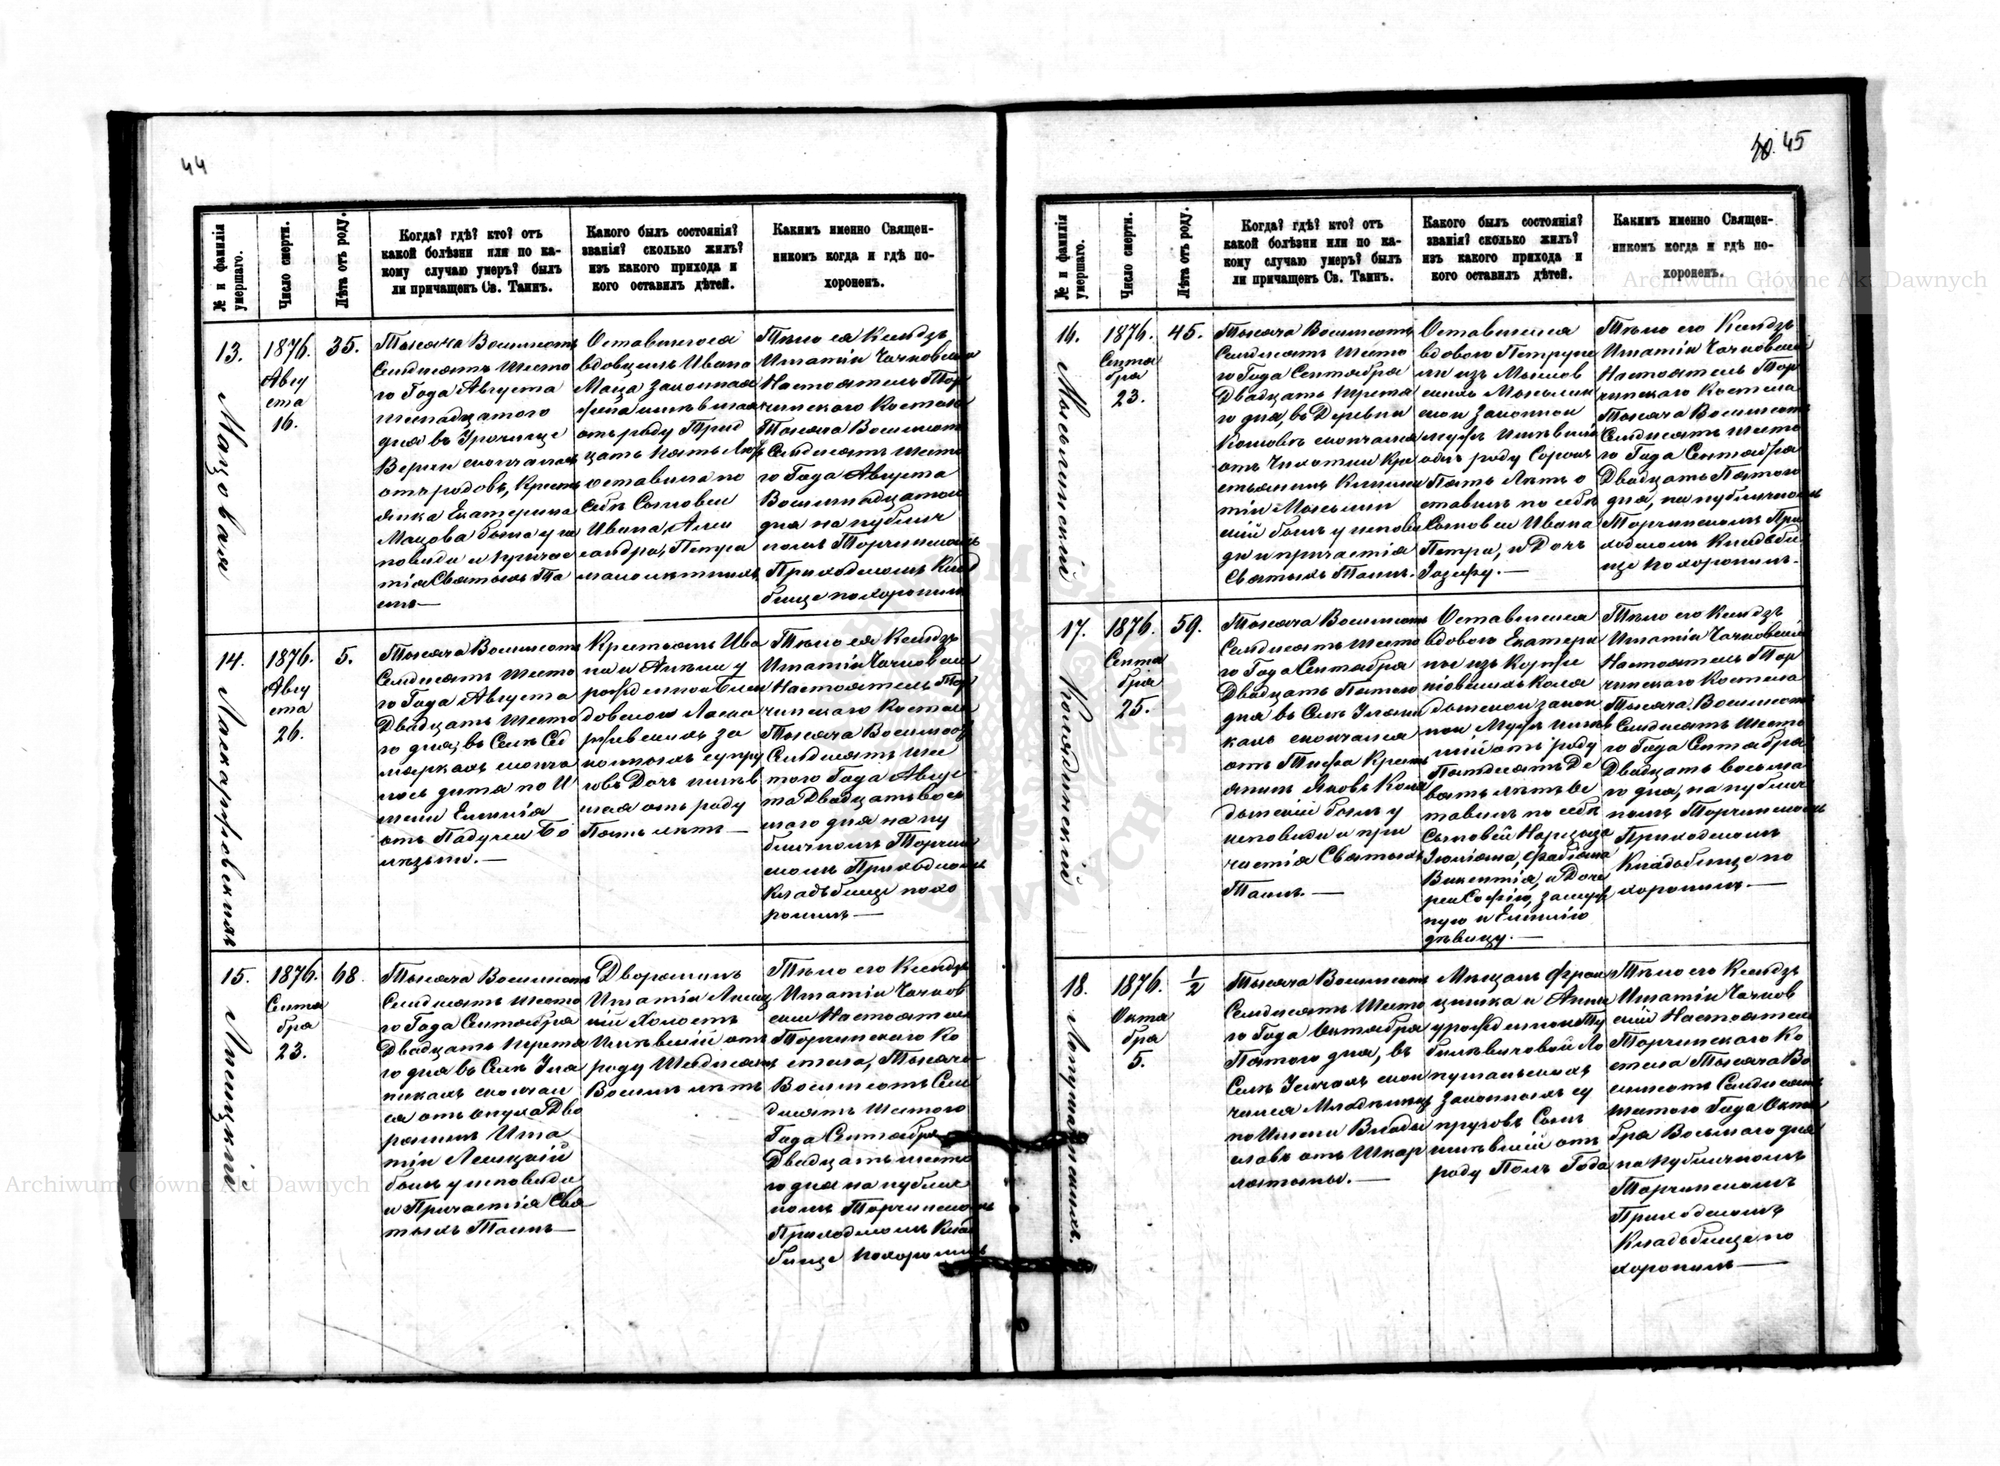 44
№ и фамилія умершаго.
Число смерти.
Лѣта отъ роду.
Когда? гдѣ? кто? отъ
какой болѣзни или по ка-
кому случаю умеръ? былъ
ли причащенъ Св. Таинъ.
Какого былъ состоянія?
званія? сколько жилъ?
изъ какого прихода и
кого оставилъ дѣтей.
Какимъ именно Священ-
никомъ когда и гдѣ по-
хороненъ.
13.
1876.
Авгу
ста
16.
35.
Тысяча Восимсотъ
Семдисятъ Шесто
го Года Августа
шенадцатого
дня въ Урочище
скончалась
отъ родовъ, Крест
янка Екатерина
Мацова была у ис
повиди и причас
тія Святыхъ Та
инъ—
Оставшогося
вдовцемъ Ивана
Маца Законная
жена имѣвшая
отъ роду Трид
цать пять лѣтъ
оставила по
себѣ Сыновей
Ивана, Алек
сандра, Петра
малолѣтнихъ
Тѣло ея Ксендзъ
Игнатій Чачковскій
Настоятель Тор
чинского Костела
Тысяча Восимсотъ
Семдисятъ шесто
го Года Августа
Восимнадцатого
дня на публич
номъ Торчинскомъ
Приходскомъ Клад
бище похоронилъ
14.
1876.
Авгу
ста
26.
5.
Тысяча Восимсотъ
Семдисятъ Шесто
го Года Августа
Двадцать Шесто
го дня, въ Селѣ Сед
маркахъ сконча
лось дитя по И
мени Емилія
отъ Падучей Бо
лѣзни.—
Крестьянъ Ива
на и Анны у
рожденной
довской Лаша
ржевскихъ за
конныхъ супру
говъ Дочь имѣв
шая отъ роду
Пять лѣтъ—
Тѣло ея Ксендзъ
Игнатій Чачковскій
Настоятель Тор
чинского Костела
Тысяча Восимсотъ
Семдисятъ Шес
того Года Авгус
та Двадцать вось
мого дня на пу
бличномъ Торчин
скомъ Приходскомъ
Кладьбище похо
ронилъ—
15.
1876.
Сентя
бря
23.
68.
Тысяча Восимсотъ
Семдисятъ шесто
го Года Сентября
Двадцать трета
го дня въ Селѣ
скончал
ся отъ опуха Дво
рянинъ Игна
тій Лешицкій
былъ у исповиди
и Причастія Свя
тыхъ Таинъ—
Дворянинъ
Игнатій
кій Холостъ
Имѣвшій отъ
роду Шесдисятъ
Восимъ лѣтъ
Тѣло его Ксендзъ
Игнатій Чачков
скій Настоятель
Торчинского Ко
стела, Тысяча
Восимсотъ Сем
дисятъ шестого
Года Сентября
Двадцать шесто
го дня на публич
номъ Торчинскомъ
Приходскомъ Клад
бище похоронилъ
45
№ и фамилія умершаго.
Число смерти.
Лѣта отъ роду.
Когда? гдѣ? кто? отъ
какой болѣзни или по ка-
кому случаю умеръ? былъ
ли причащенъ Св. Таинъ.
Какого былъ состоянія?
званія? сколько жилъ?
изъ какого прихода и
кого оставилъ дѣтей.
Какимъ именно Священ-
никомъ когда и гдѣ по-
хороненъ.
16.
1876.
Сентя
бря
23.
45.
Тысяча Восимсотъ
Семдисятъ Шесто
го Года Сентября
Двадцать трета
го дня, въ Деревни
скончался
отъ Чахотки Кре
стьянинъ
скій былъ у испови
ди и причастія
Святыхъ Таинъ.
Оставшейся
вдовою Петруне
ли изъ
ской Законной
мужъ имѣвшій
отъ роду Сорокъ
Пять Лѣтъ о
ставилъ по себѣ
Сыновей Ивана
Петра, и Дочь
Іозефу.—
Тѣло его Ксендзъ
Игнатій Чачковскій
Настоятель Тор
чинского Костела
Тысяча Восимсотъ
Семдисятъ шесто
го Года Сентября
Двадцать Пятого
дня, на публичномъ
Торчинскомъ При
ходскомъ Кладьби
ще похоронилъ.
17.
1876.
Сентя
бря
25.
59.
Тысяча Восимсотъ
Семдисятъ Шесто
го Года Сентября
Двадцать Пятого
дня въ Селѣ
скончался
отъ Тифа Крест
янинъ Яковъ
былъ у
исповиди и при
частія Святыхъ
Таинъ.—
Оставшейся
вдовою Екатери
ны изъ
закон
ной Мужъ имѣв
шій отъ роду
Пятдисятъ Де
вять лѣтъ
тавилъ по себѣ
Сыновей
Юліана, Фабіана
Викентія, и Доче
рей Софію замуж
ную и Емилію
дѣвицу.—
Тѣло его Ксендзъ
Игнатій Чачковскій
Настоятель Тор
чинского Костела
Тысяча Восимсотъ
Семдисятъ Шесто
го Года Сентября
Двадцать восьмо
го дня, на публич
номъ Торчинскомъ
Приходскомъ
Кладьбище по
хоронилъ.—
18.
1876.
Октя
бря
5.
1/2
Тысяча Восимсотъ
Семдисятъ Шесто
го Года Октября
Пятого дня, въ
Селѣ скон
чался Младенецъ
по Имени Влади
славъ отъ Шкар
лятыны.—
Мѣщанъ Фран
цишка и Анны
урожденной
Законныхъ су
пруговъ Сынъ
имѣвшій отъ
роду Полъ Года
Тѣло его Ксендзъ
Игнатій Чачков
скій Настоятель
Торчинского Ко
стела Тысяча Во
симсотъ Семдисятъ
шестого Года Октя
бря Восьмого дня
на публичномъ
Торчинскомъ
Приходскомъ
Кладьбище по
хоронилъ—
Archiwum Główne Akt Dawnych
Archiwum Główne Akt Dawnych